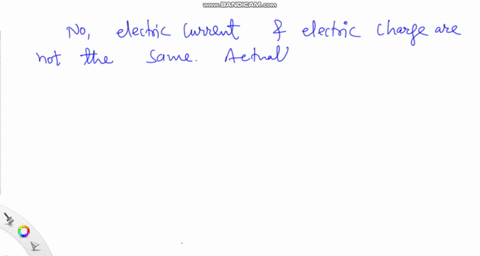 www.BANDICAM.com
No, electric current & electric charge are
not the same. Actual